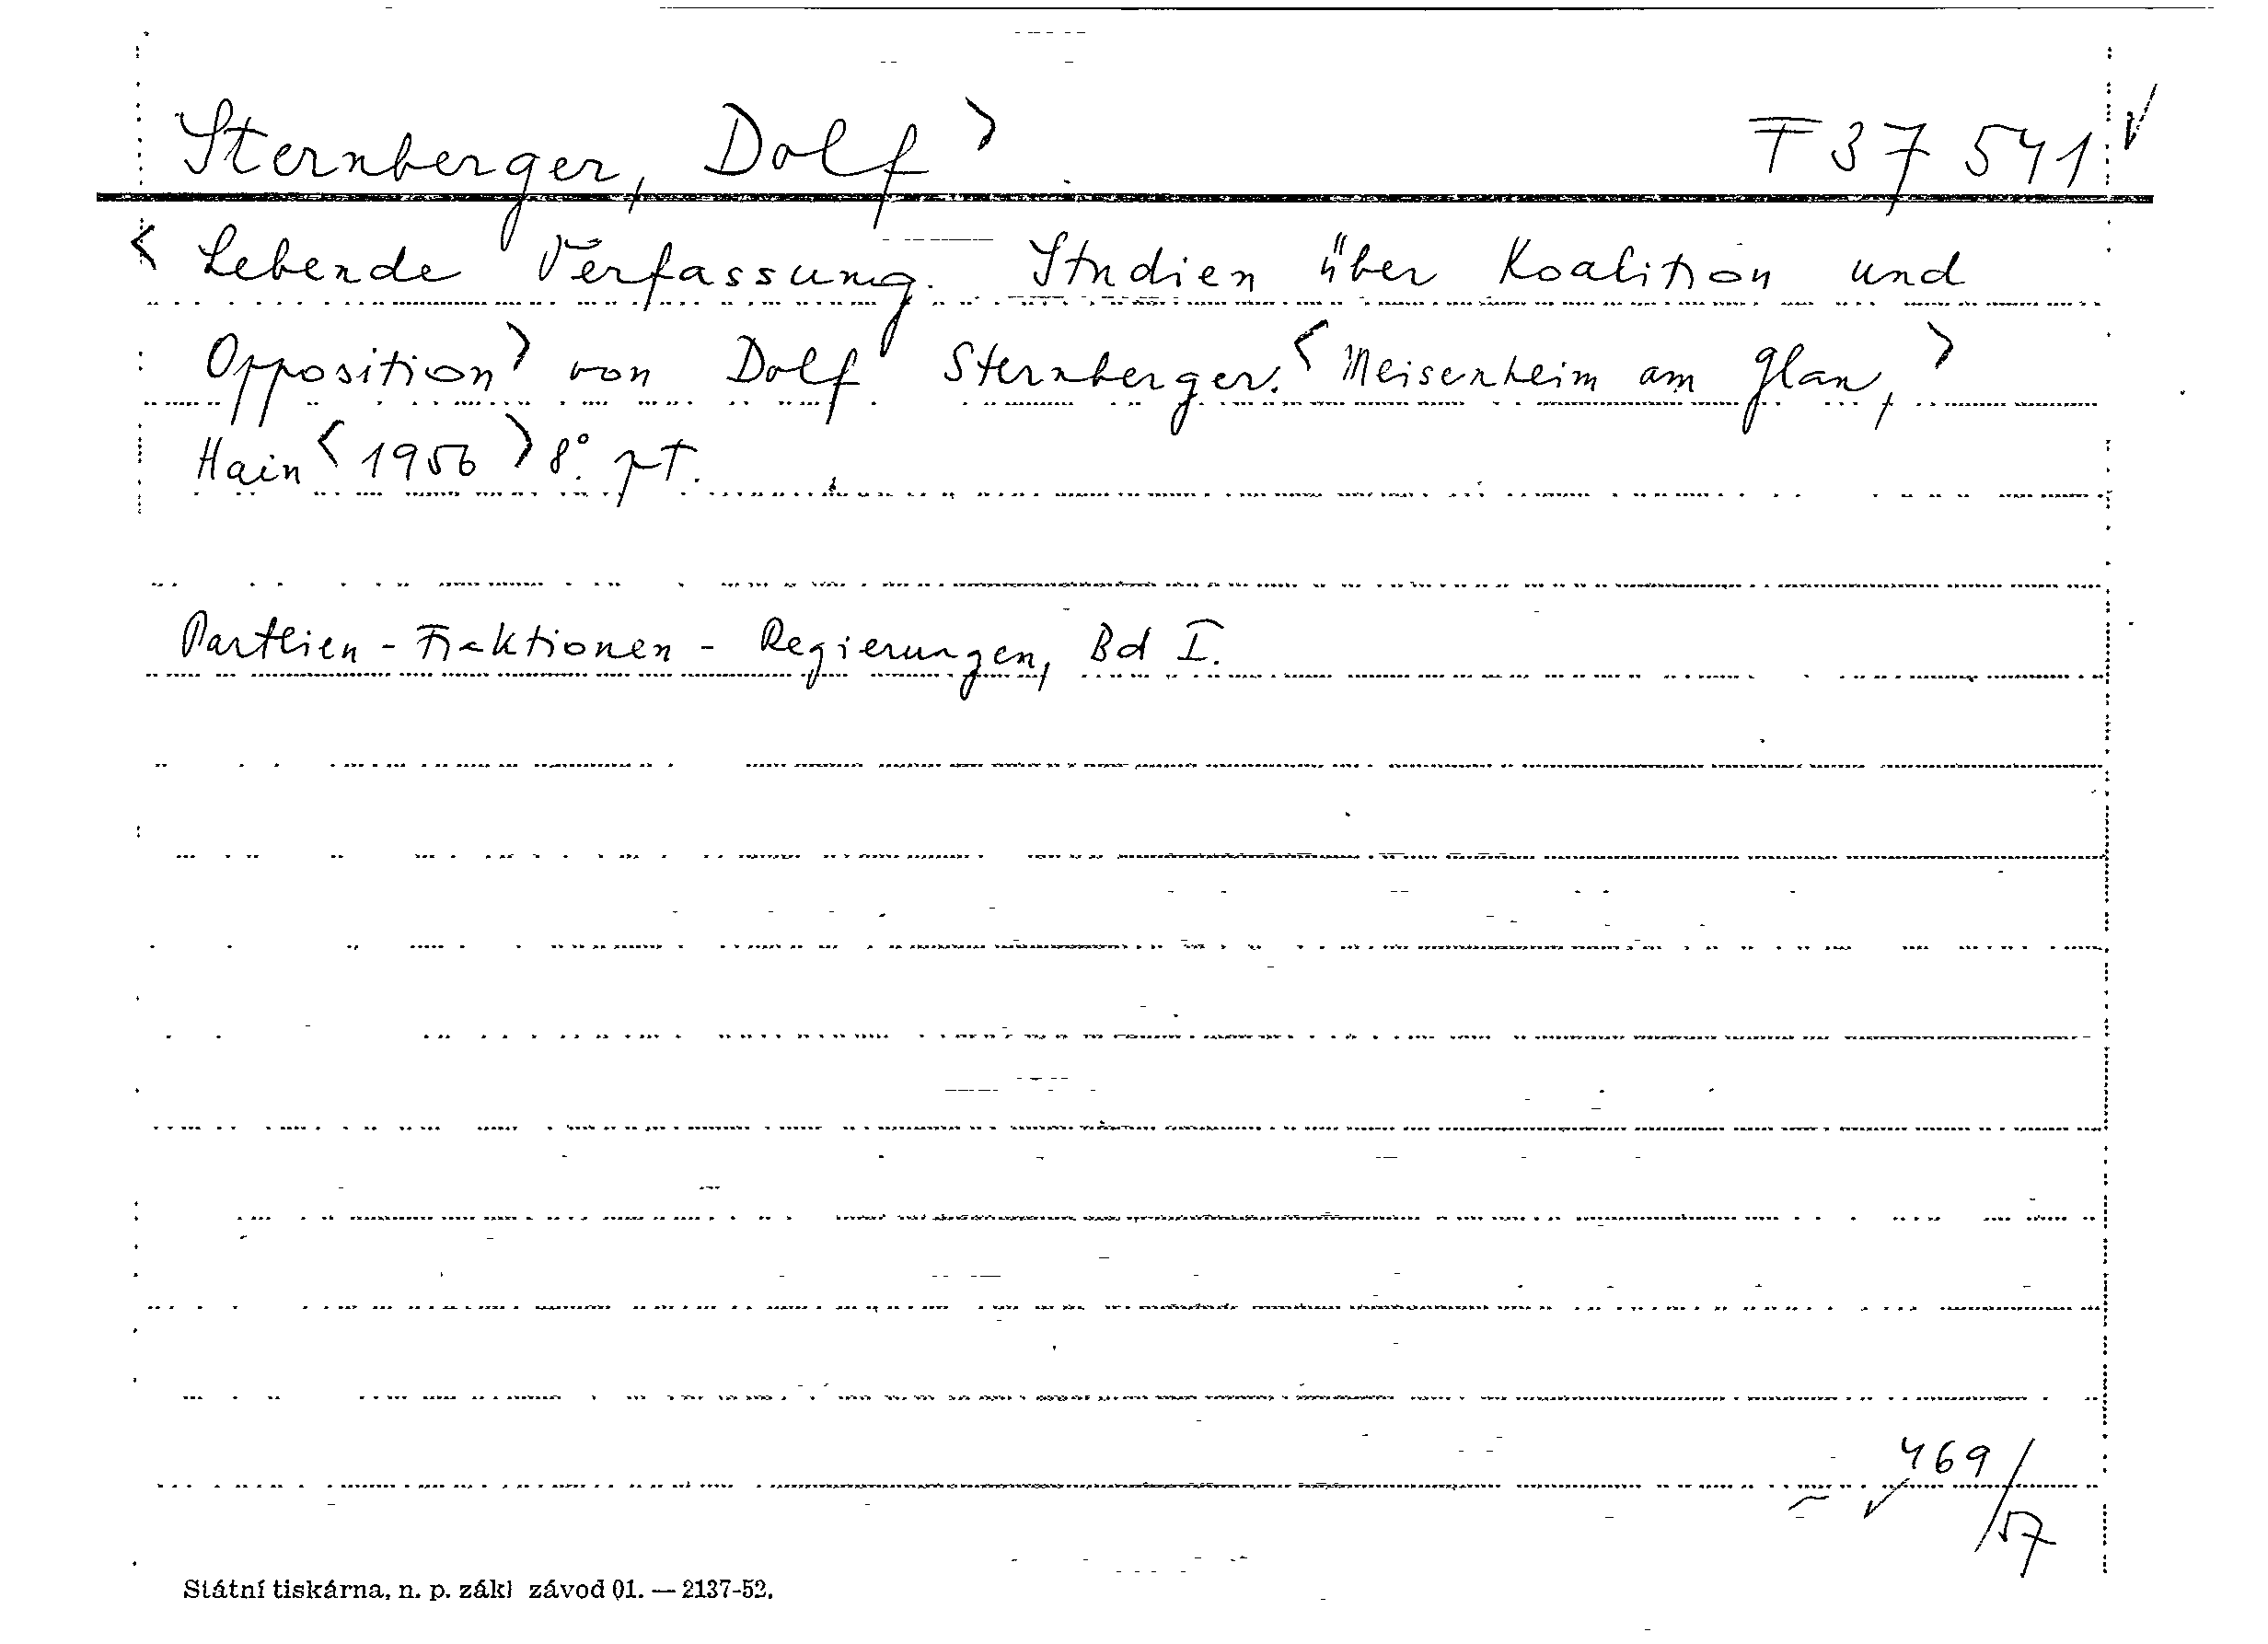 Sternberger, Dolf > F 37 541 ✓
< Lebende Verfassung. Studien über Koalition und
Opposition > von Dolf Sternberger. < Meisenheim am Glan, >
Hain < 1956 > 8°. pt.
Parteien - Fraktionen - Regierungen, Bd I.
✓ 469/57
Státní tiskárna, n. p. zákl závod 01. — 2137-52.